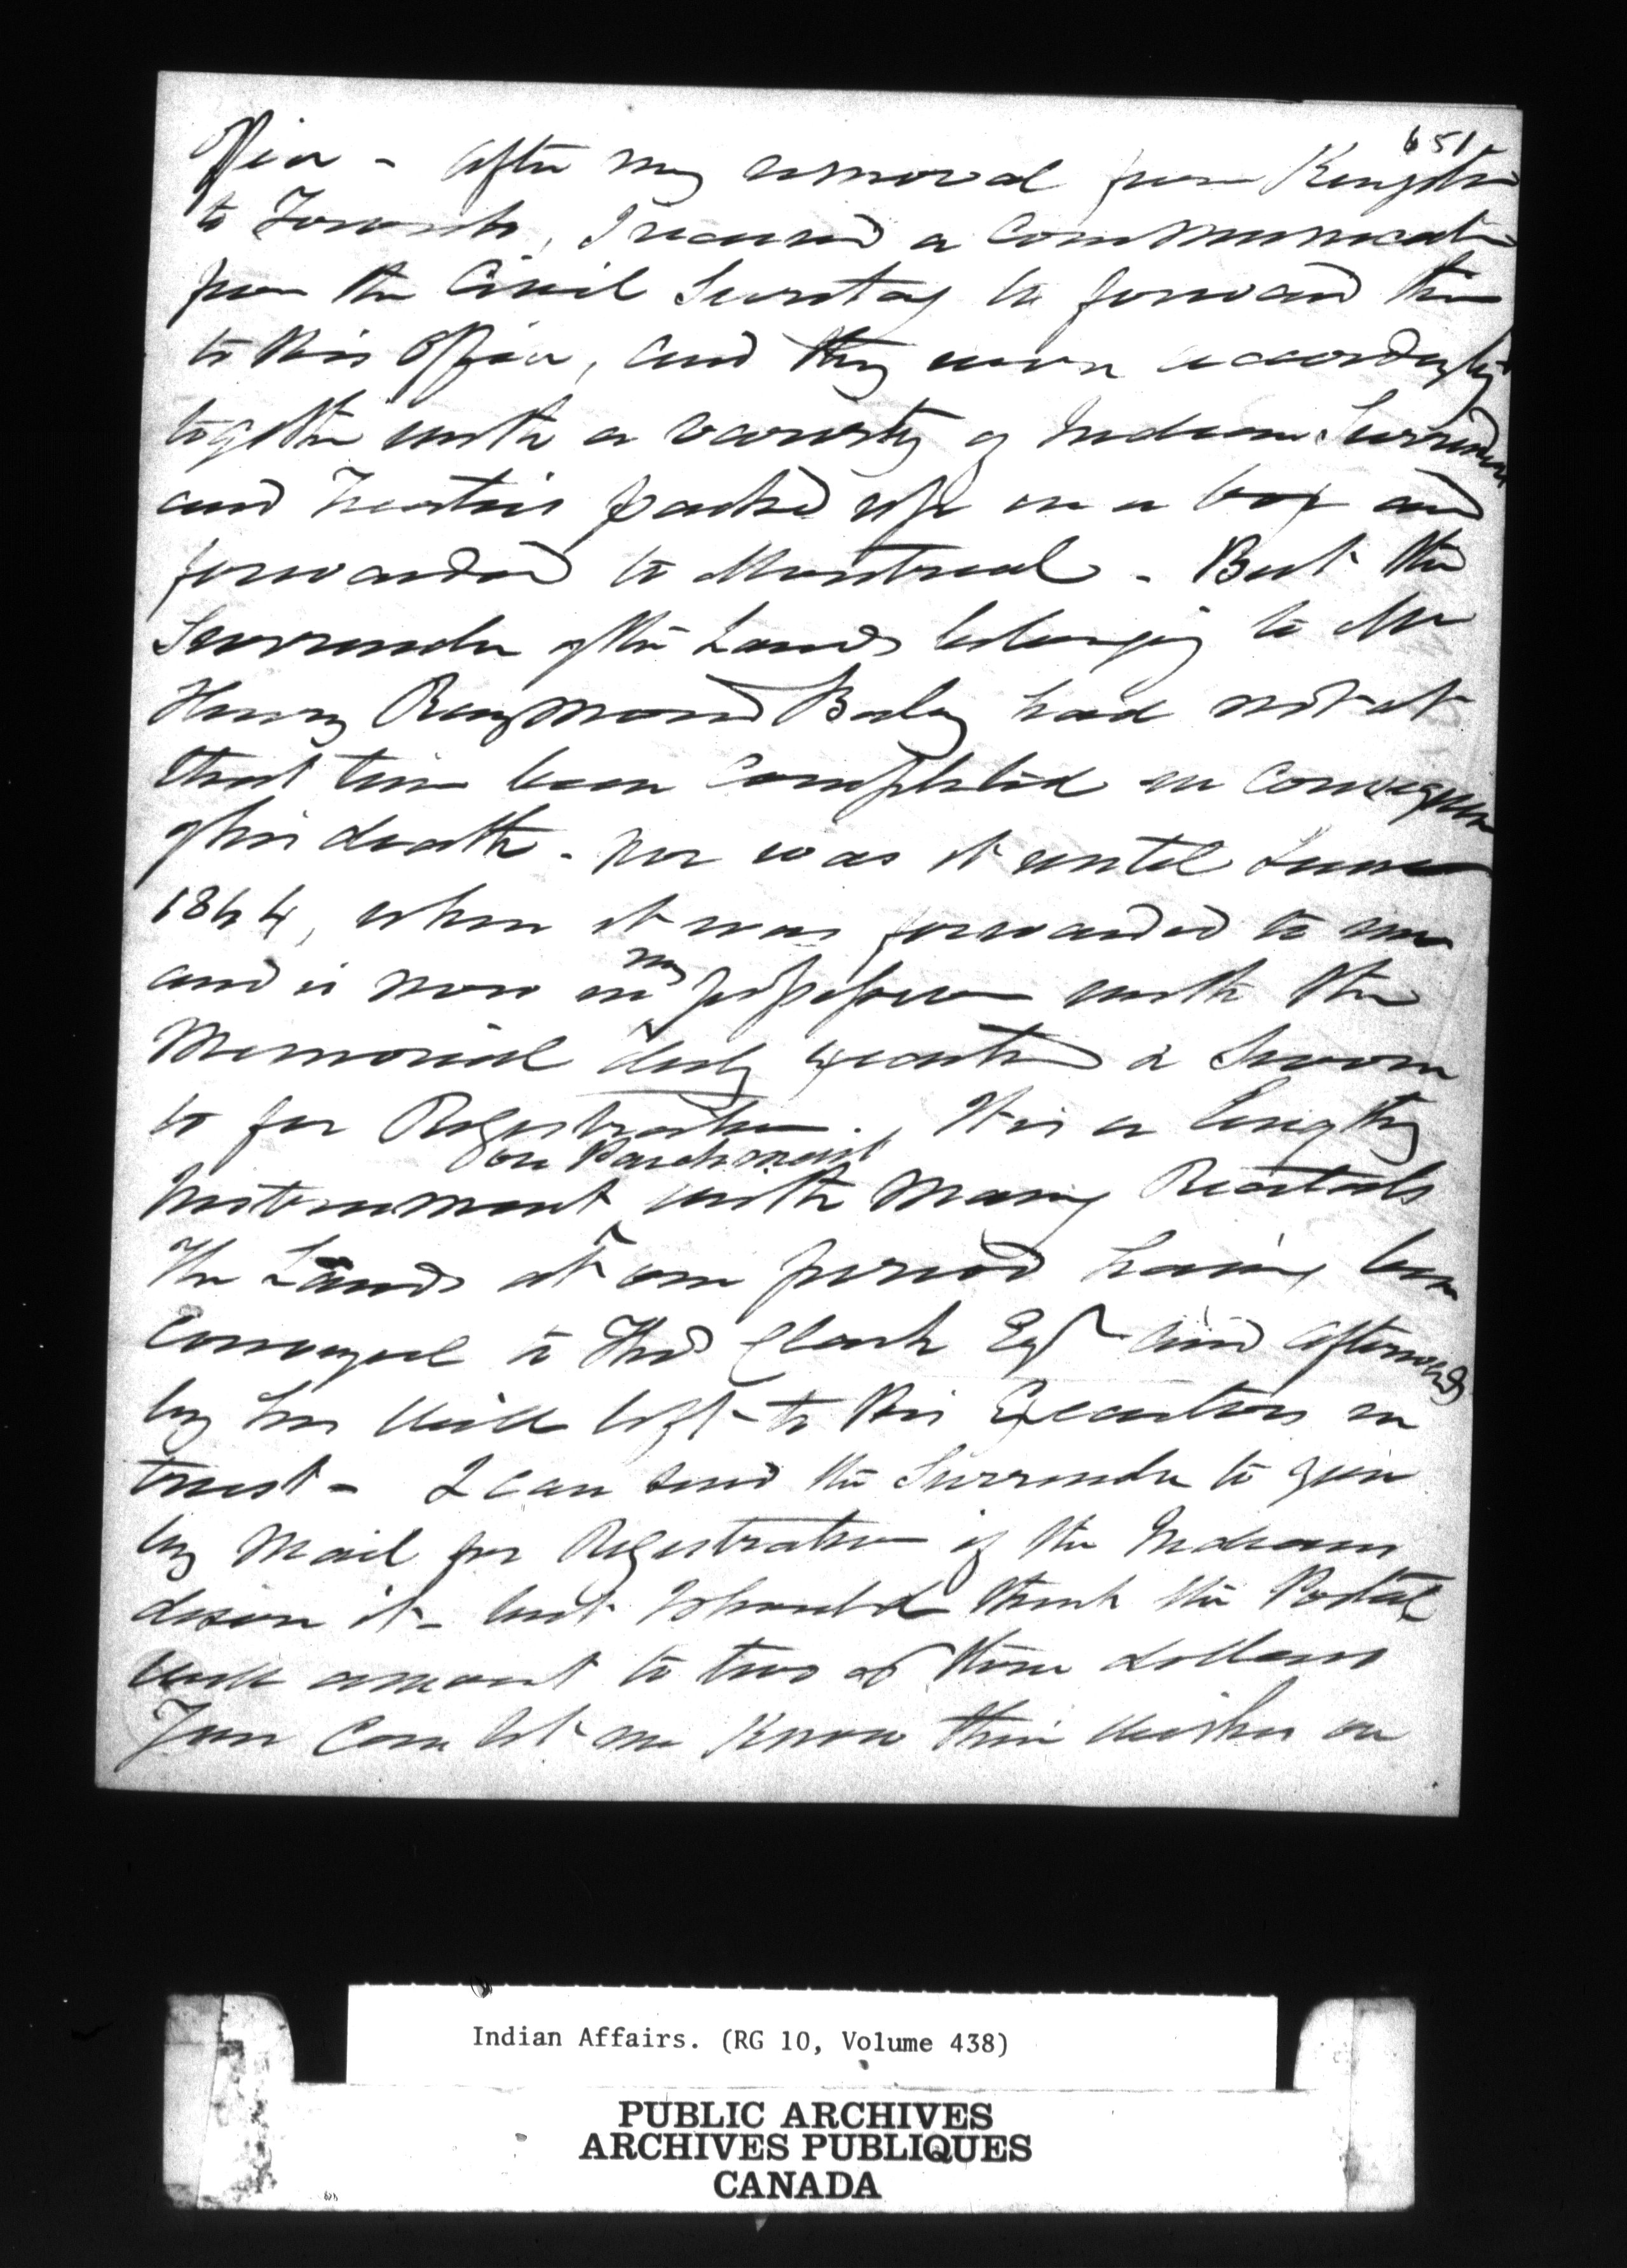 651
Office - After my removal from Kingston
to Toronto, I received a communication
from the Civil Secretary to forward them
to his office, and they were accordingly
together with a variety of Indian Surrenders
and Treaties packed up in a box and
forwarded to Montreal - But the
Surrender of the Lands belonging to Mr
Henry Raymond Baby had not at
that time been Completed in consequence
of his death - nor was it until June
1844, when it was forwarded to me
my
and is now in possession with the
Memorial duly executed & Sworn
to for Registration. It is a lengthy
on Parchment
Instrument with Many Recitals
The Lands at one period having been
Conveyed to Thos Clark Esqr and afterwards
by his will left to his Executors in
trust - I can send the Surrender to you
by Mail for Registration if the Indians
desire it - but I should think the Postage
will amount to two or three dollars
You can let me know their wishes on
Indian Affairs. (RG 10, Volume 438)
PUBLIC ARCHIVES
ARCHIVES PUBLIQUES
CANADA